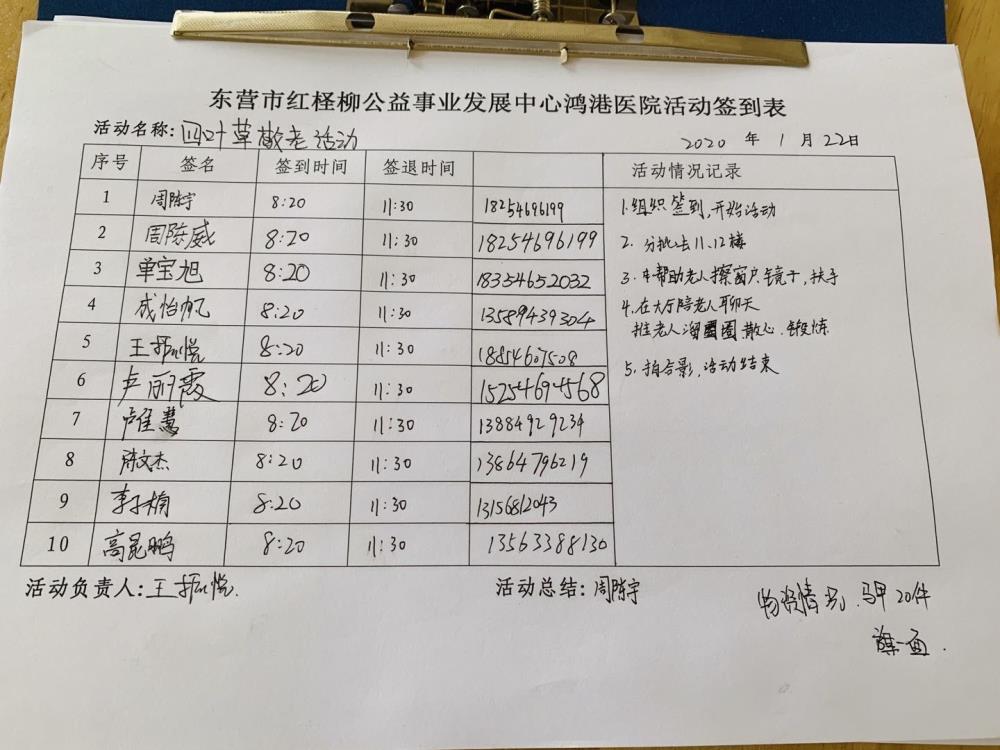 东营市红柽柳公益事业发展中心鸿港医院活动签到表
活动名称：四叶草敬老活动 2020 年 1 月 22日
序号 签名 签到时间 签退时间 活动情况记录
1 周陈宇 8:20 11:30 18254696199
2 周陈威 8:20 11:30 18254696199
3 单宝旭 8:20 11:30 18354652032
4 成怡帆 8:20 11:30 13589439304
5 王振悦 8:20 11:30 18854607508
6 卢丽霞 8:20 11:30 15254694568
7 卢佳慧 8:20 11:30 13884929234
8 陈文杰 8:20 11:30 13864796219
9 李子楠 8:20 11:30 13156812043
10 高昆鹏 8:20 11:30 13563388130
1.组织签到,开始活动
2. 分批去11、12楼
3. 帮助老人擦窗户、镜子,扶手
4.在大厅陪老人聊天
推老人溜圈,散心.锻炼
5.拍合影,活动结束
活动负责人:王振悦.
活动总结: 周陈宇
物资情况.马甲20件
旗一面.